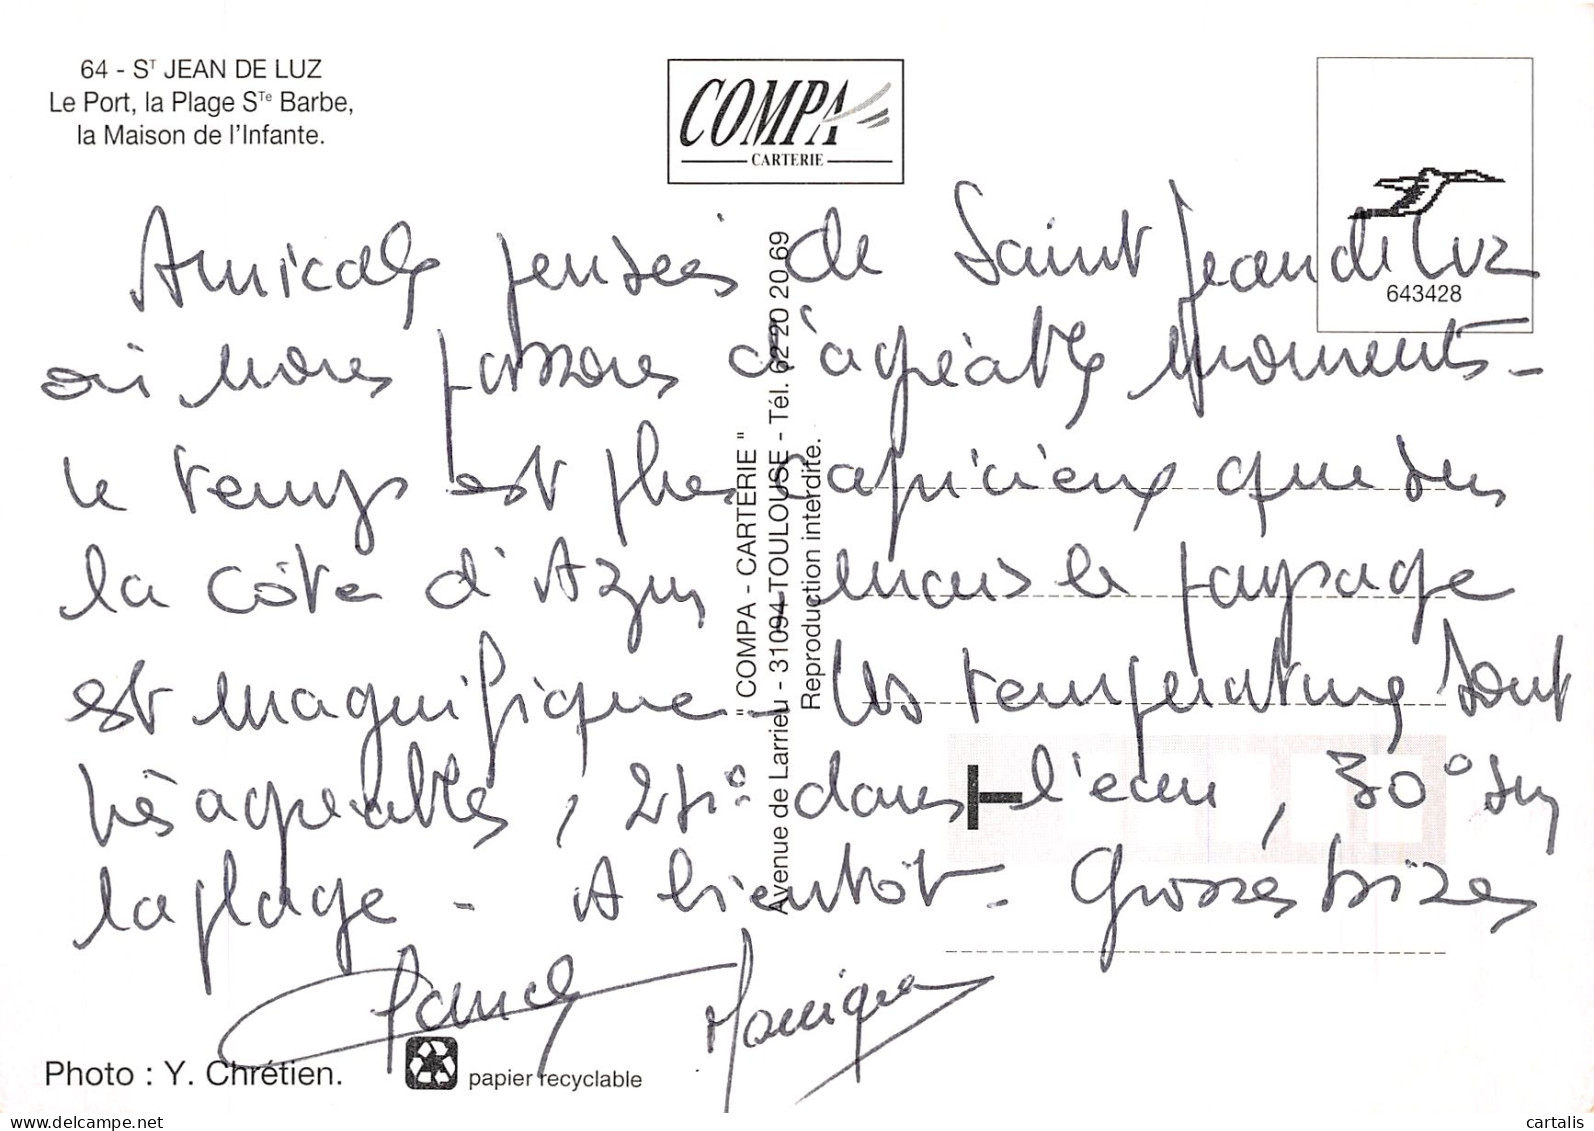 64 - ST JEAN DE LUZ
Le Port, la Plage STe Barbe,
la Maison de l'Infante.
COMPA
CARTERIE
643428
Amicales pensées de Saint Jean de Luz
où nous passons d'agréables moments -
le temps est plus capricieux que sur
la côte d'Azur mais le paysage
est magnifique - les températures sont
très agréables, dans l'eau, 30° sur
la plage - A bientôt - Grosses bises
Monique
" COMPA - CARTERIE "
Avenue de Larrieu - 31094 TOULOUSE - Tél. 62 20 20 69
Reproduction interdite.
Photo : Y. Chrétien.
papier recyclable
www.delcampe.net
cartalis